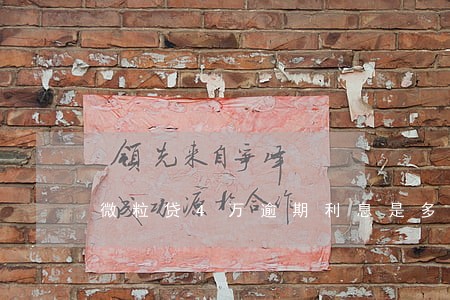 领先来自争峰
成功源於合作
微粒贷4 万逾期利息是多